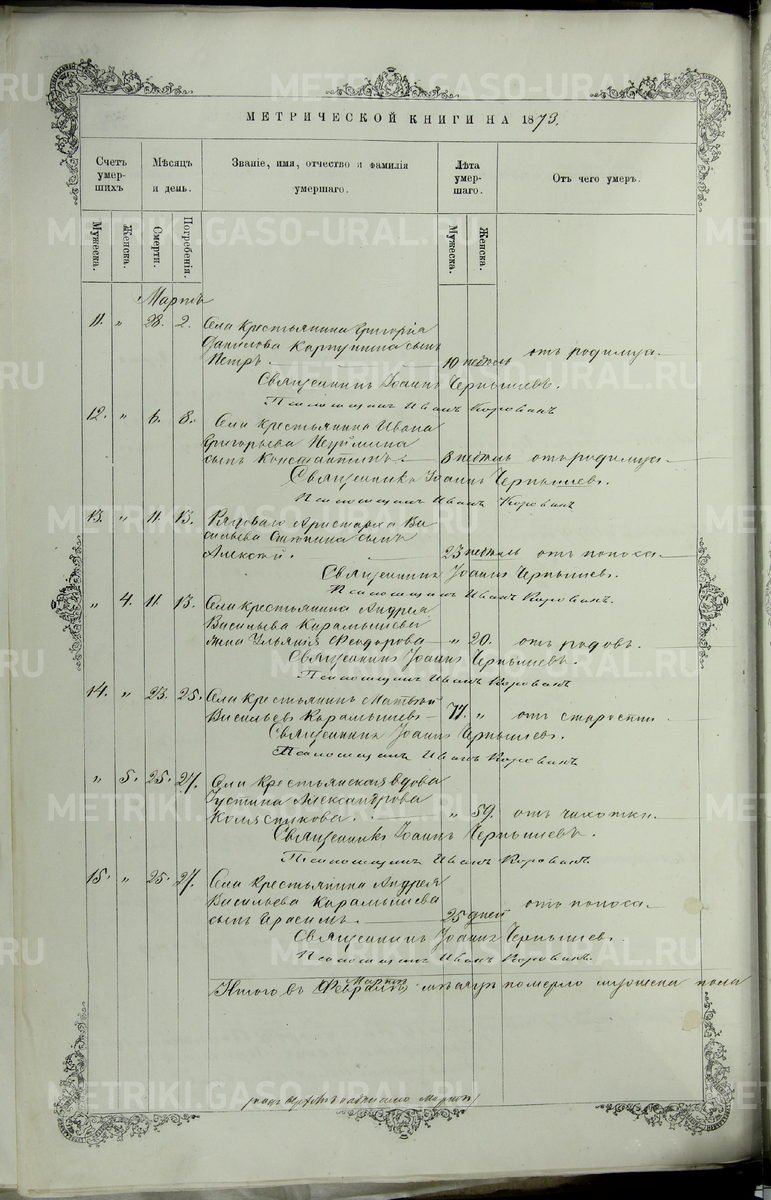 МЕТРИЧЕСКОЙ КНИГИ НА 1873.
Счетъ умер- шихъ
Мѣсяцъ и день.
Званіе, имя, отчество и фамилія умершаго.
Лѣта умер- шаго.
Отъ чего умеръ.
Мужеска.
Женска.
Смерти.
Погребенія.
Мужеска.
Женска.
Мартъ
11. " 28. 2. Села крестьянина Григорія
Данилова сынъ
Петръ. 10 недѣль отъ родимца.
Священникъ Іоаннъ Чернышевъ.
Псаломщикъ Иванъ
12. " 6. 8. Села крестьянина Ивана
Григорьева
сынъ Константинъ. 8 недѣль отъ родимца.
Священникъ Іоаннъ Чернышевъ.
Псаломщикъ Иванъ
13. " 11. 13. Рядоваго Аристарха Ва
сильева сынъ
Алексѣй. 23 недѣль отъ поноса.
Священникъ Іоаннъ Чернышев.
Псаломщикъ Иванъ
" 4. 11. 13. Села крестьянина Андрея
Васильева Карамышева
жена Ульянія Феодорова " 20. отъ родовъ.
Священникъ Іоаннъ Чернышевъ.
Псаломщикъ Иванъ
14. " 23. 25. Села крестьянинъ Матвѣй
Васильевъ Карамышевъ 77. " отъ старости.
Священникъ Іоаннъ Чернышев.
Псаломщикъ Иванъ
" 5. 25. 27. Села крестьянская вдова
Іустина Александрова
" 59. отъ чахотки.
Священникъ Іоаннъ Чернышевъ.
Псаломщикъ Иванъ
15. " 25. 27. Села крестьянина Андрея
Васильева Карамышева
сынъ Герасимъ. 25 дней отъ поноса.
Священникъ Іоаннъ Чернышев.
Псаломщикъ Иванъ
Мартѣ
Итого въ Февралѣ мѣсяцѣ померло мужеска пола
METRIKI.GASO-URAL.RU